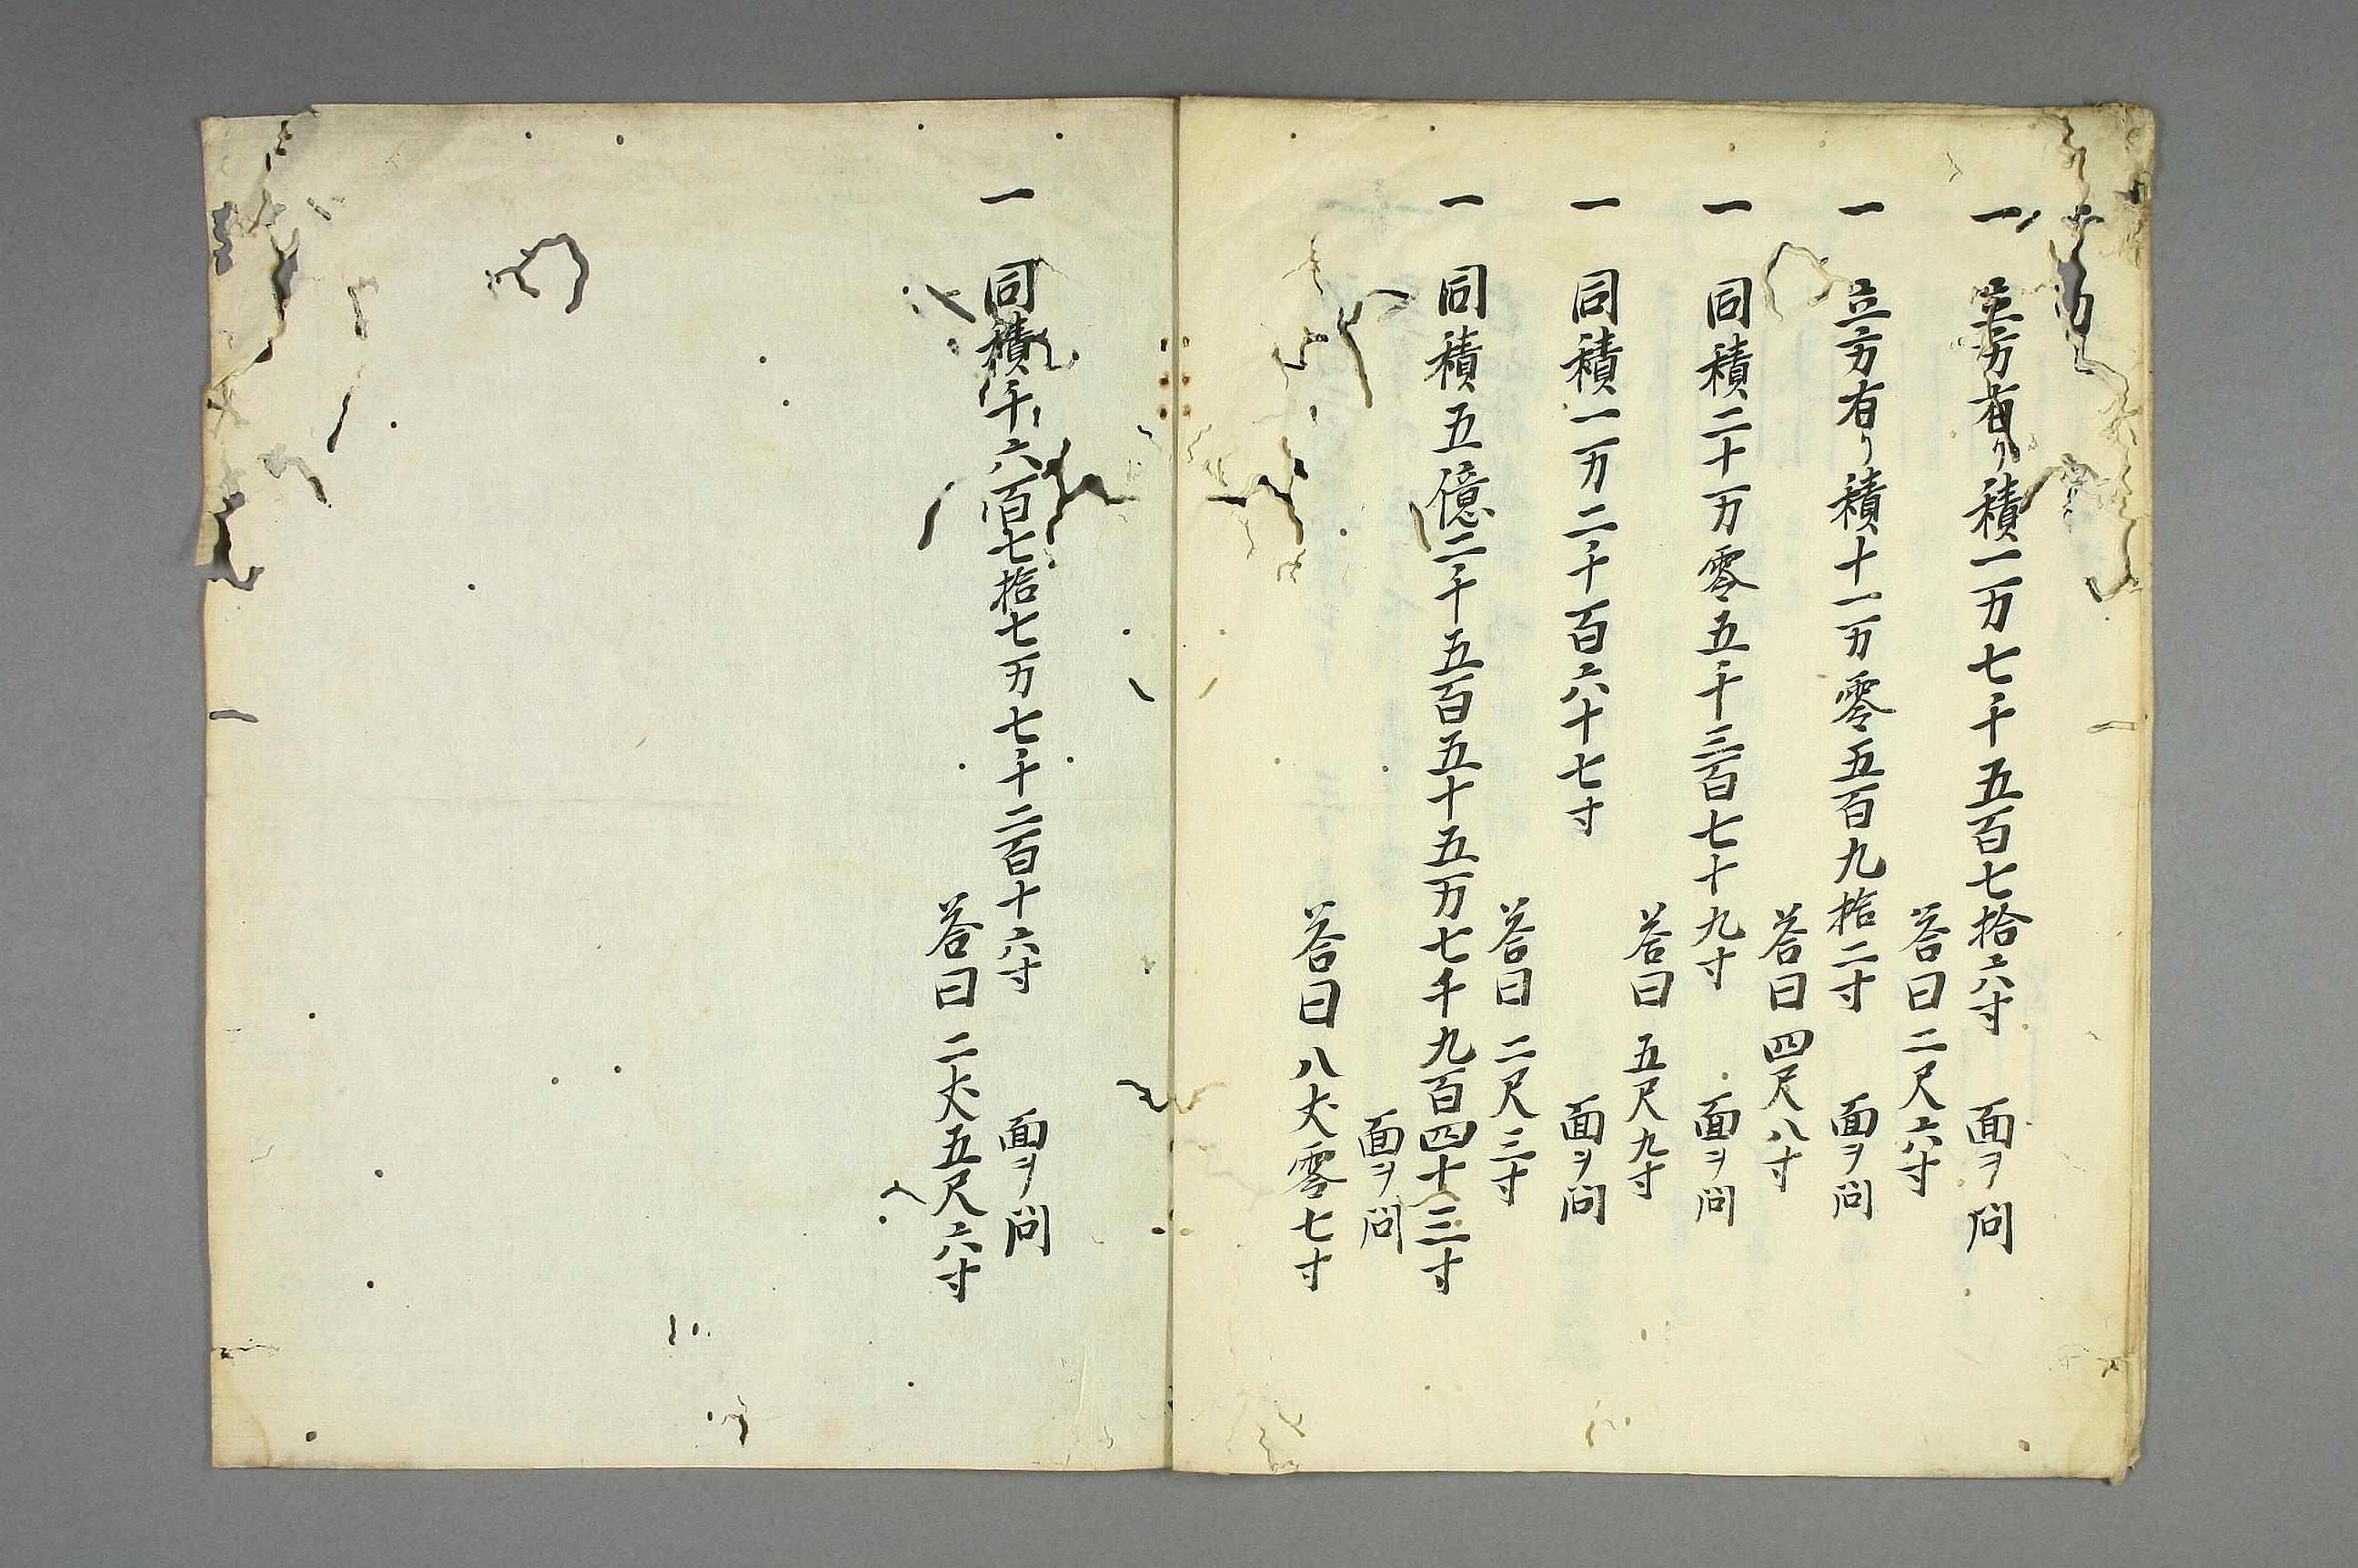 一 立方有リ積一万七千五百七拾六寸 面ヲ問
答曰 二尺六寸
一 立方有リ積十一万零五百九拾二寸 面ヲ問
答曰 四尺八寸
一 同積二十万零五千三百七十九寸 面ヲ問
答曰 五尺九寸
一 同積一万二千百六十七寸 面ヲ問
答曰 二尺三寸
一 同積五億二千五百五十五万七千九百四十三寸
面ヲ問
答曰 八丈零七寸
一 同積千六百七拾七万七千二百十六寸 面ヲ問
答曰 二丈五尺六寸